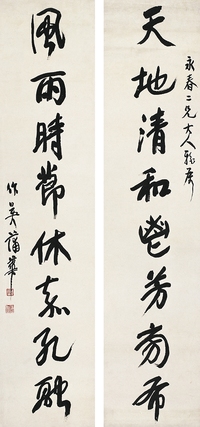 永春二兄大人雅屬
天地清和鬯芳旁布
風雨時節休嘉孔融
作英蒲華